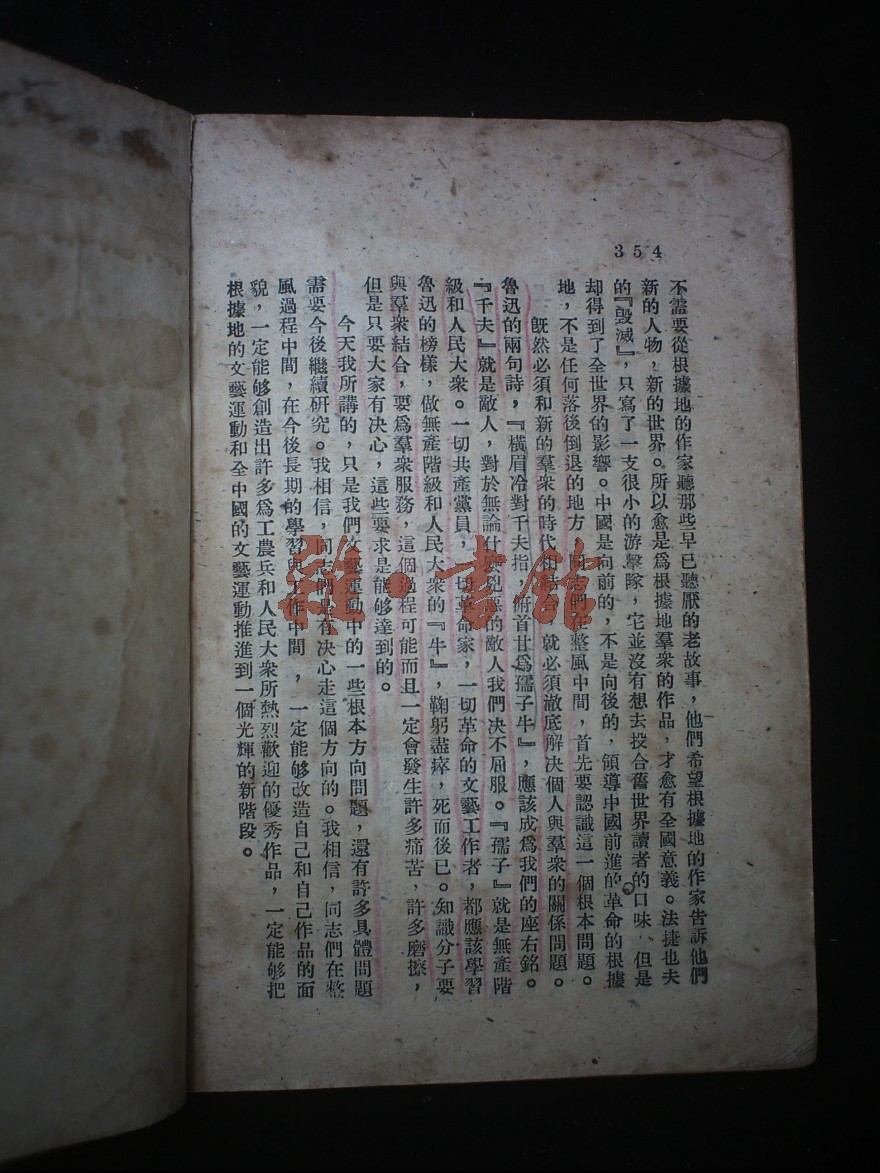 354
不需要從根據地的作家聽那些早已聽厭的老故事，他們希望根據地的作家告訴他們
新的人物，新的世界。所以愈是爲根據地羣衆的作品，才愈有全國意義。法捷也夫
的『毀滅』，只寫了一支很小的游擊隊，它並沒有想去投合舊世界讀者的口味、但是
却得到了全世界的影響。中國是向前的，不是向後的，領導中國前進的革命的根據
地，不是任何落後倒退的地方 同志們在整風中間，首先要認識這一個根本問題。
既然必須和新的羣衆的時代相結合 就必須澈底解决個人與羣衆的關係問題。
魯迅的兩句詩，『橫眉冷對千夫指 俯首甘爲孺子牛』，應該成爲我們的座右銘。
『千夫』就是敵人，對於無論什麽兇惡的敵人我們决不屈服。『孺子』就是無產階
級和人民大衆。一切共產黨員，一切革命家，一切革命的文藝工作者，都應該學習
魯迅的榜樣，做無產階級和人民大衆的『牛』，鞠躬盡瘁，死而後已。知識分子要
與羣衆結合，要爲羣衆服務，這個過程可能而且一定會發生許多痛苦，許多磨擦，
但是只要大家有決心，這些要求是能够達到的。
今天我所講的，只是我們文藝運動中的一些根本方向問題，還有許多具體問題
需要今後繼續研究。我相信，同志們是有决心走這個方向的。我相信，同志們在整
風過程中間，在今後長期的學習與工作中間，一定能够改造自己和自己作品的面
貌，一定能够創造出許多爲工農兵和人民大衆所熱烈歡迎的優秀作品，一定能够把
根據地的文藝運動和全中國的文藝運動推進到一個光輝的新階段。
雜·書館